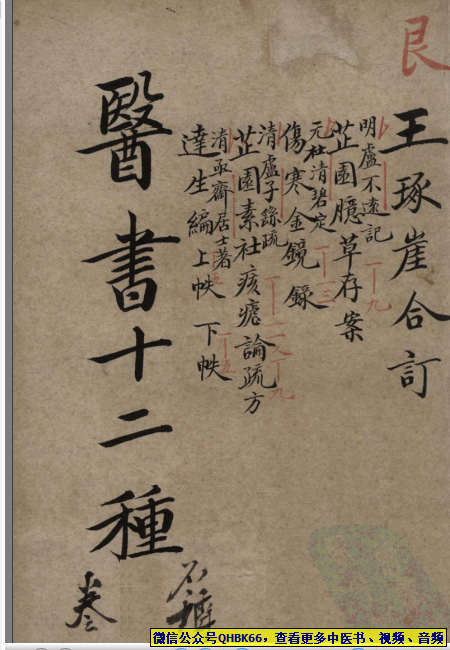 艮
王琢崖合訂
明盧不遠記
芷園臆草存案
元杜清碧定
傷寒金鏡錄
清盧子繇疏
芷園素社痎瘧論疏方
清亟齋居士著
達生編上帙 下帙
醫書十二種
微信公众号QHBK66，查看更多中医书、视频、音频